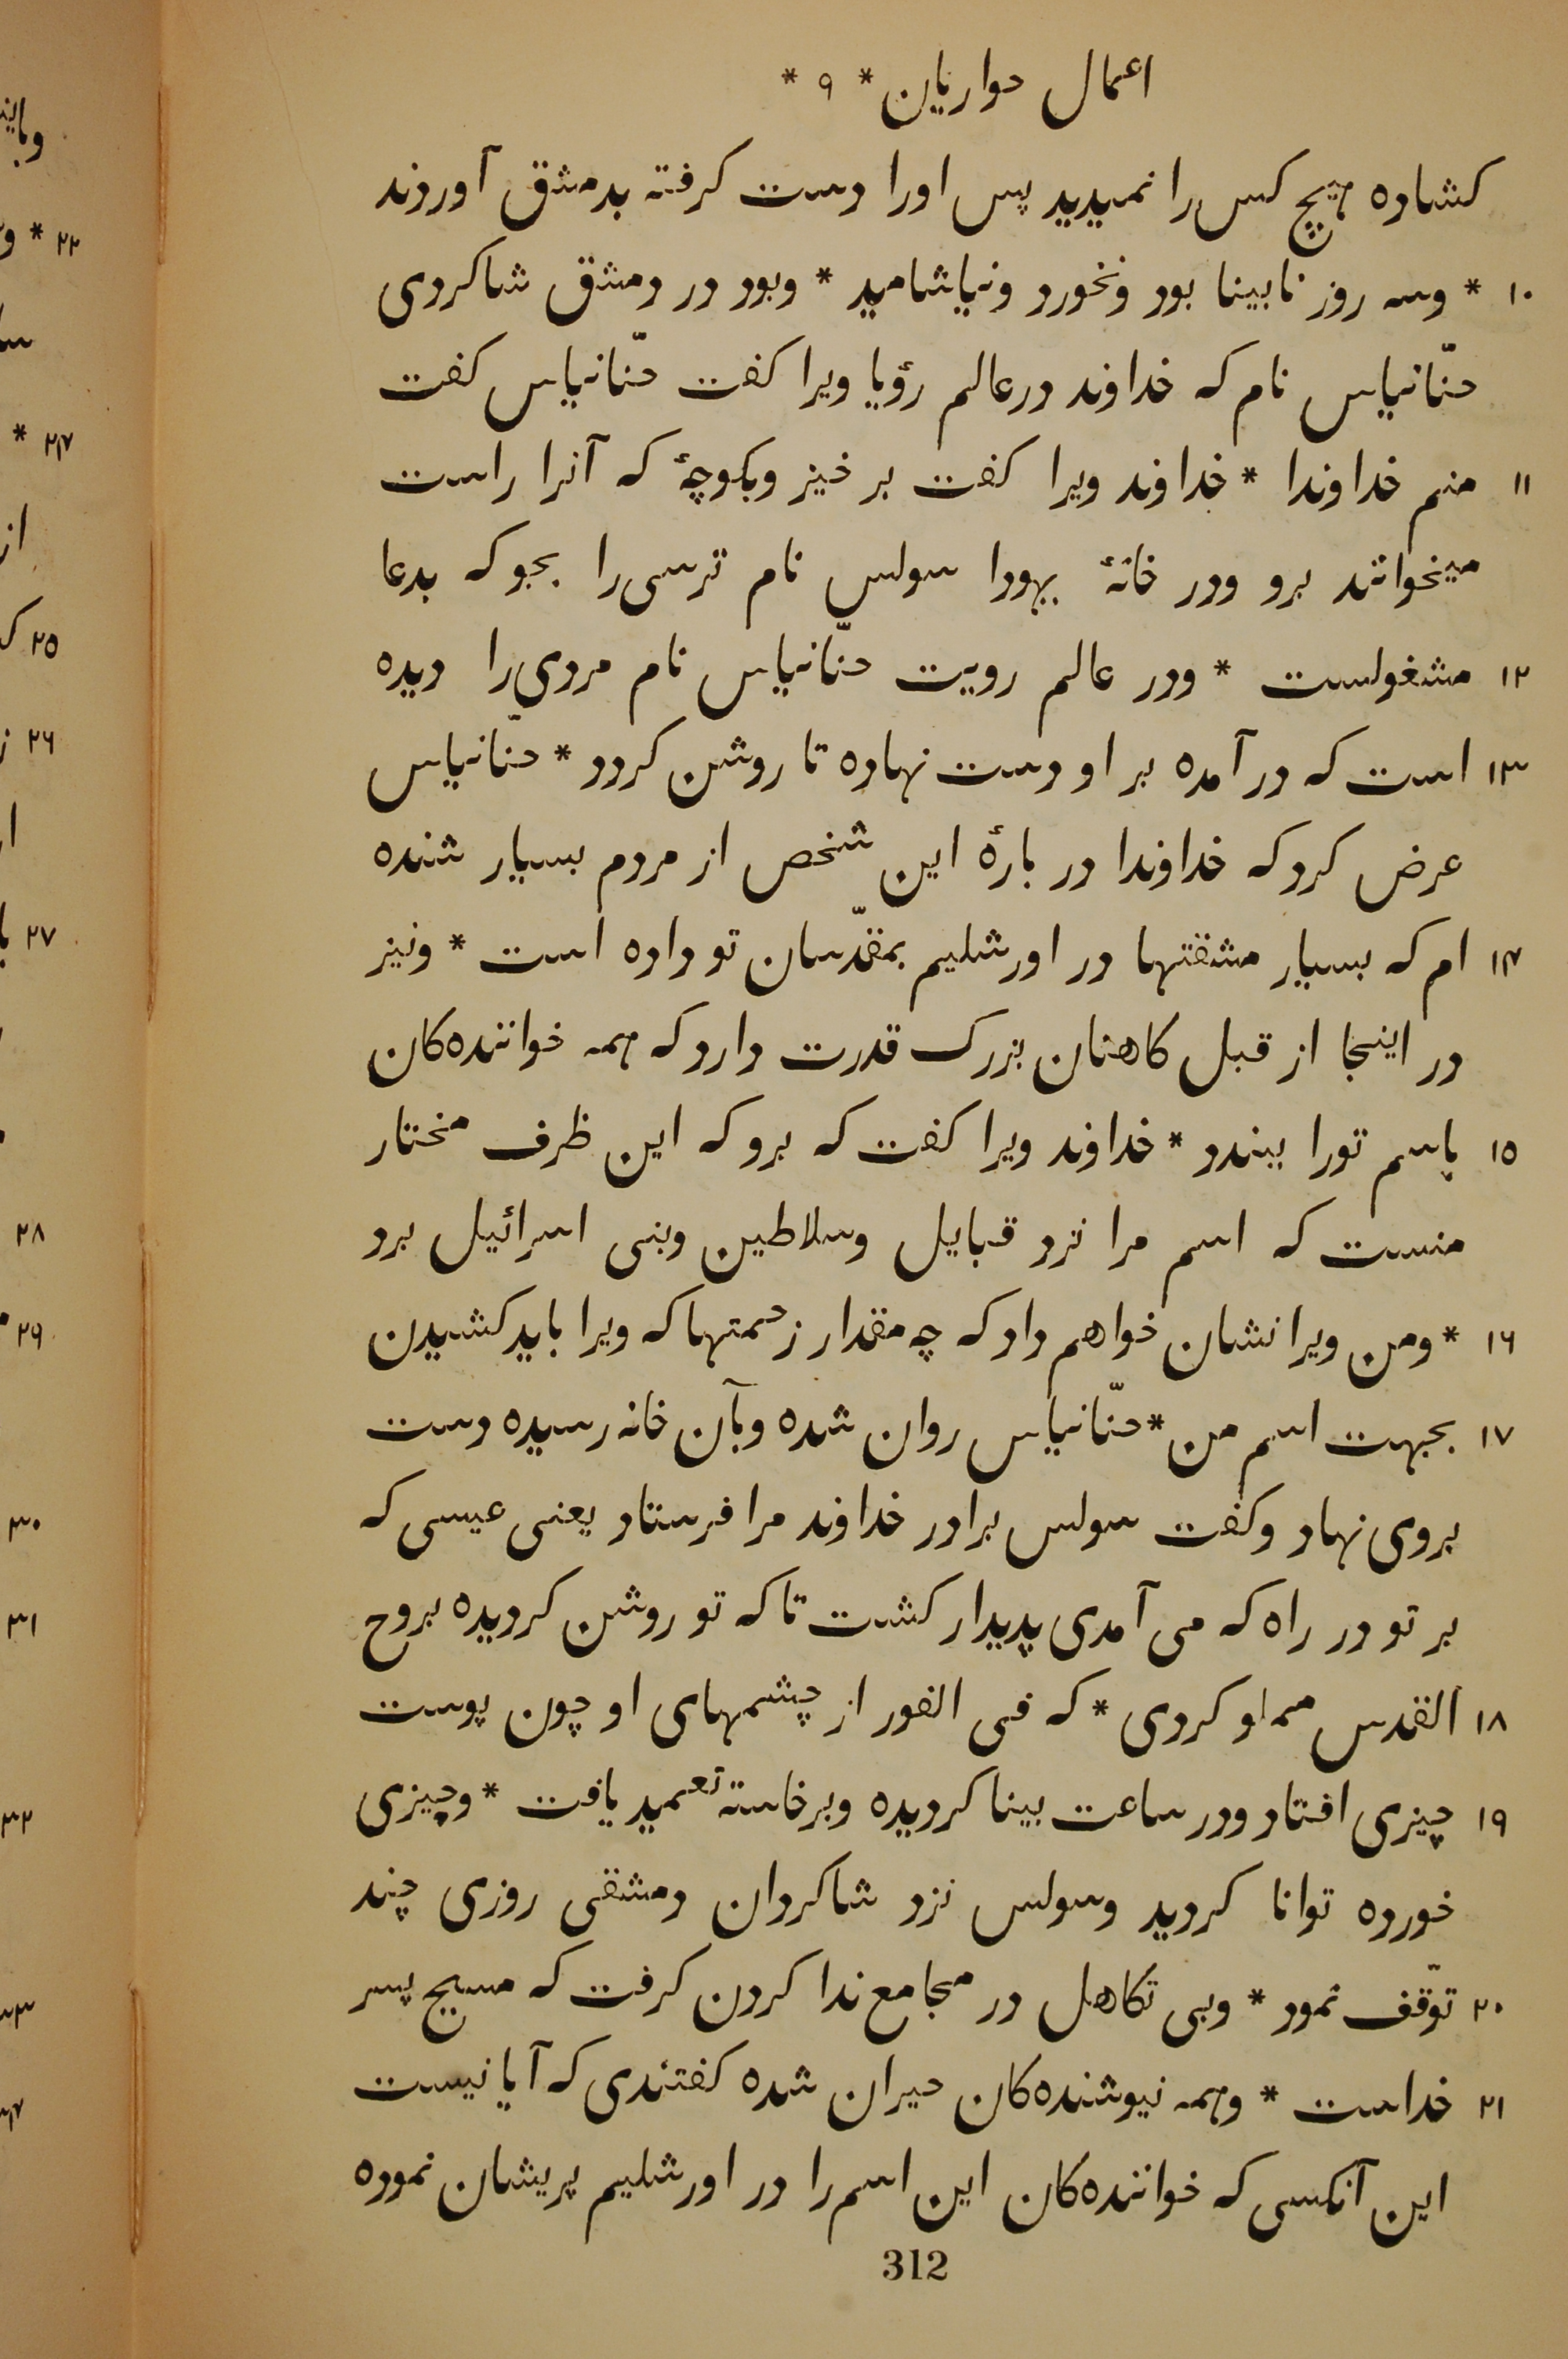 اعمال حواریان * ۹ *
کشاده هیچ کس را نمیدید پس اورا دست کرفته بدمشق آوردند
۱۰ * وسه روز نابینا بود ونخورد ونیاشامید * وبود در دمشق شاکردی
حنّانیاس نام که خداوند درعالم رؤیا ویرا کفت حنّانیاس کفت
۱۱ منم خداوندا * خداوند ویرا کفت بر خیز وبکوچهٔ که آنرا راست
میخوانند برو ودر خانهٔ یهودا سولس نام ترسی را بجو که بدعا
۱۲ مشغولست * ودر عالم رویت حنّانیاس نام مردی را دیده
۱۳ است که در آمده بر او دست نهاده تا روشن کردد * حنّانیاس
عرض کرد که خداوندا در بارهٔ این شخص از مردم بسیار شنده
۱۴ ام که بسیار مشقتها در اورشلیم بمقدّسان تو داده است * ونیز
در اینجا از قبل کاهنان بزرک قدرت دارد که همه خواننده‌کان
۱۵ باسم تورا ببندد * خداوند ویرا کفت که برو که این ظرف مختار
منست که اسم مرا نزد قبایل وسلاطین وبنی اسرائیل برد
۱۶ * ومن ویرا نشان خواهم داد که چه مقدار زحمتها که ویرا باید کشیدن
۱۷ بجهت اسم من * حنّانیاس روان شده وبآن خانه رسیده دست
بروی نهاد وکفت سولس برادر خداوند مرا فرستاد یعنی عیسی که
بر تو در راه که می آمدی پدیدار کشت تا که تو روشن کردیده بروح
۱۸ القدس مملو کردی * که فی الفور از چشمهای او چون پوست
۱۹ چیزی افتاد ودر ساعت بینا کردیده وبرخاسته تعمید یافت * وچیزی
خورده توانا کردید وسولس نزد شاکردان دمشقی روزی چند
۲۰ توّقف نمود * وبی تکاهل در مجامع ندا کردن کرفت که مسیح پسر
۲۱ خداست * وهمه نیوشنده‌کان حیران شده کفتندی که آیا نیست
این آنکسی که خواننده‌کان این اسم را در اورشلیم پریشان نموده
312